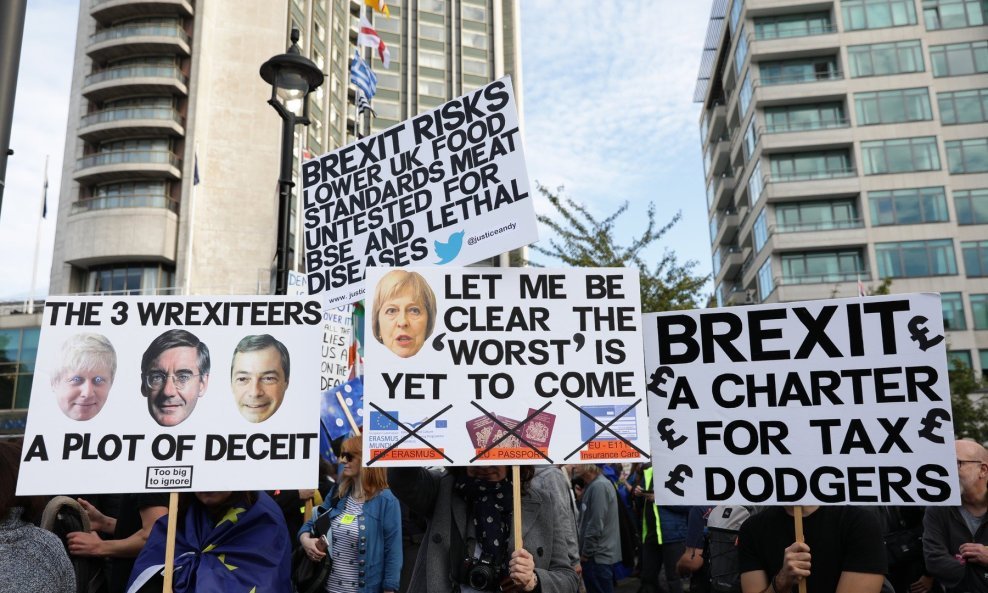 BREXIT RISKS
LOWER UK FOOD
STANDARDS MEAT
UNTESTED FOR
BSE AND LETHAL
DISEASES
@justiceandy
THE 3 WREXITEERS
A PLOT OF DECEIT
Too big
to ignore
OVER IT
ALL THE
LIES
LET ME BE
CLEAR THE
'WORST' IS
YET TO COME
EU- ERASMUS
EU - PASSPORT
EU - E111
Insurance Card
BREXIT £
£ A CHARTER
£ FOR TAX £
£ DODGERS